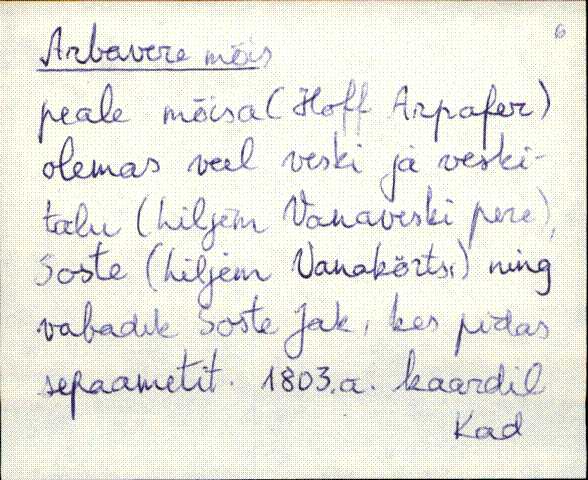 6
Arbavere mõis
peale mõisa (Hoff Arpafer)
olemas veel veski ja veski-
talu (hiljem Vanaveski pere),
Soste (hiljem Vanakõrtsi) ning
vabadik Soste Jak, kes pidas
sepaametit. 1803.a. kaardil
Kad